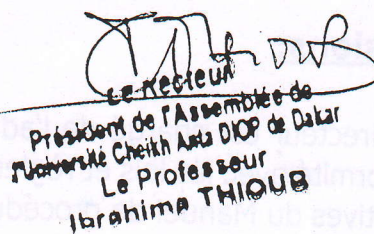 Le Recteur
Président de l'Assemblée de
l'Université Cheikh Anta DIOP de Dakar
Le Professeur
Ibrahima THIOUB